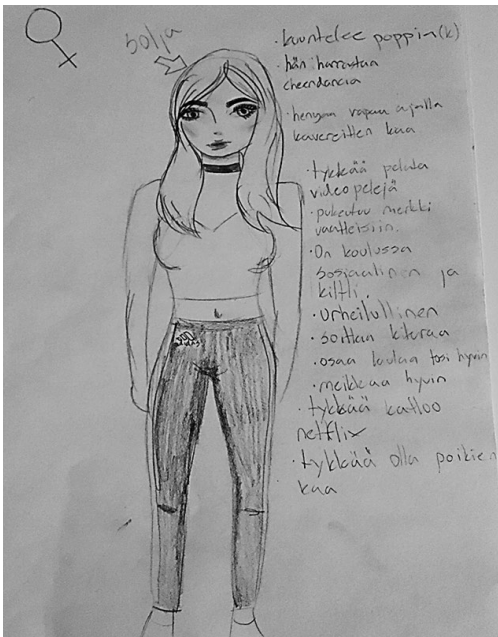 solja
· kuuntelee poppia(k)
· hän harrastaa
cheerdancia
· hengaa vapaa ajalla
kavereitten kaa
· tykkää pelata
videopelejä
· pukeutuu merkki
vaatteisiin.
· On koulussa
sosiaalinen ja
kiltti.
· Urheilullinen
· soittaa kitaraa
· osaa laulaa tosi hyvin
· meikkaa hyvin
· tykkää kattoo
netflix
· tykkää olla poikien
kaa